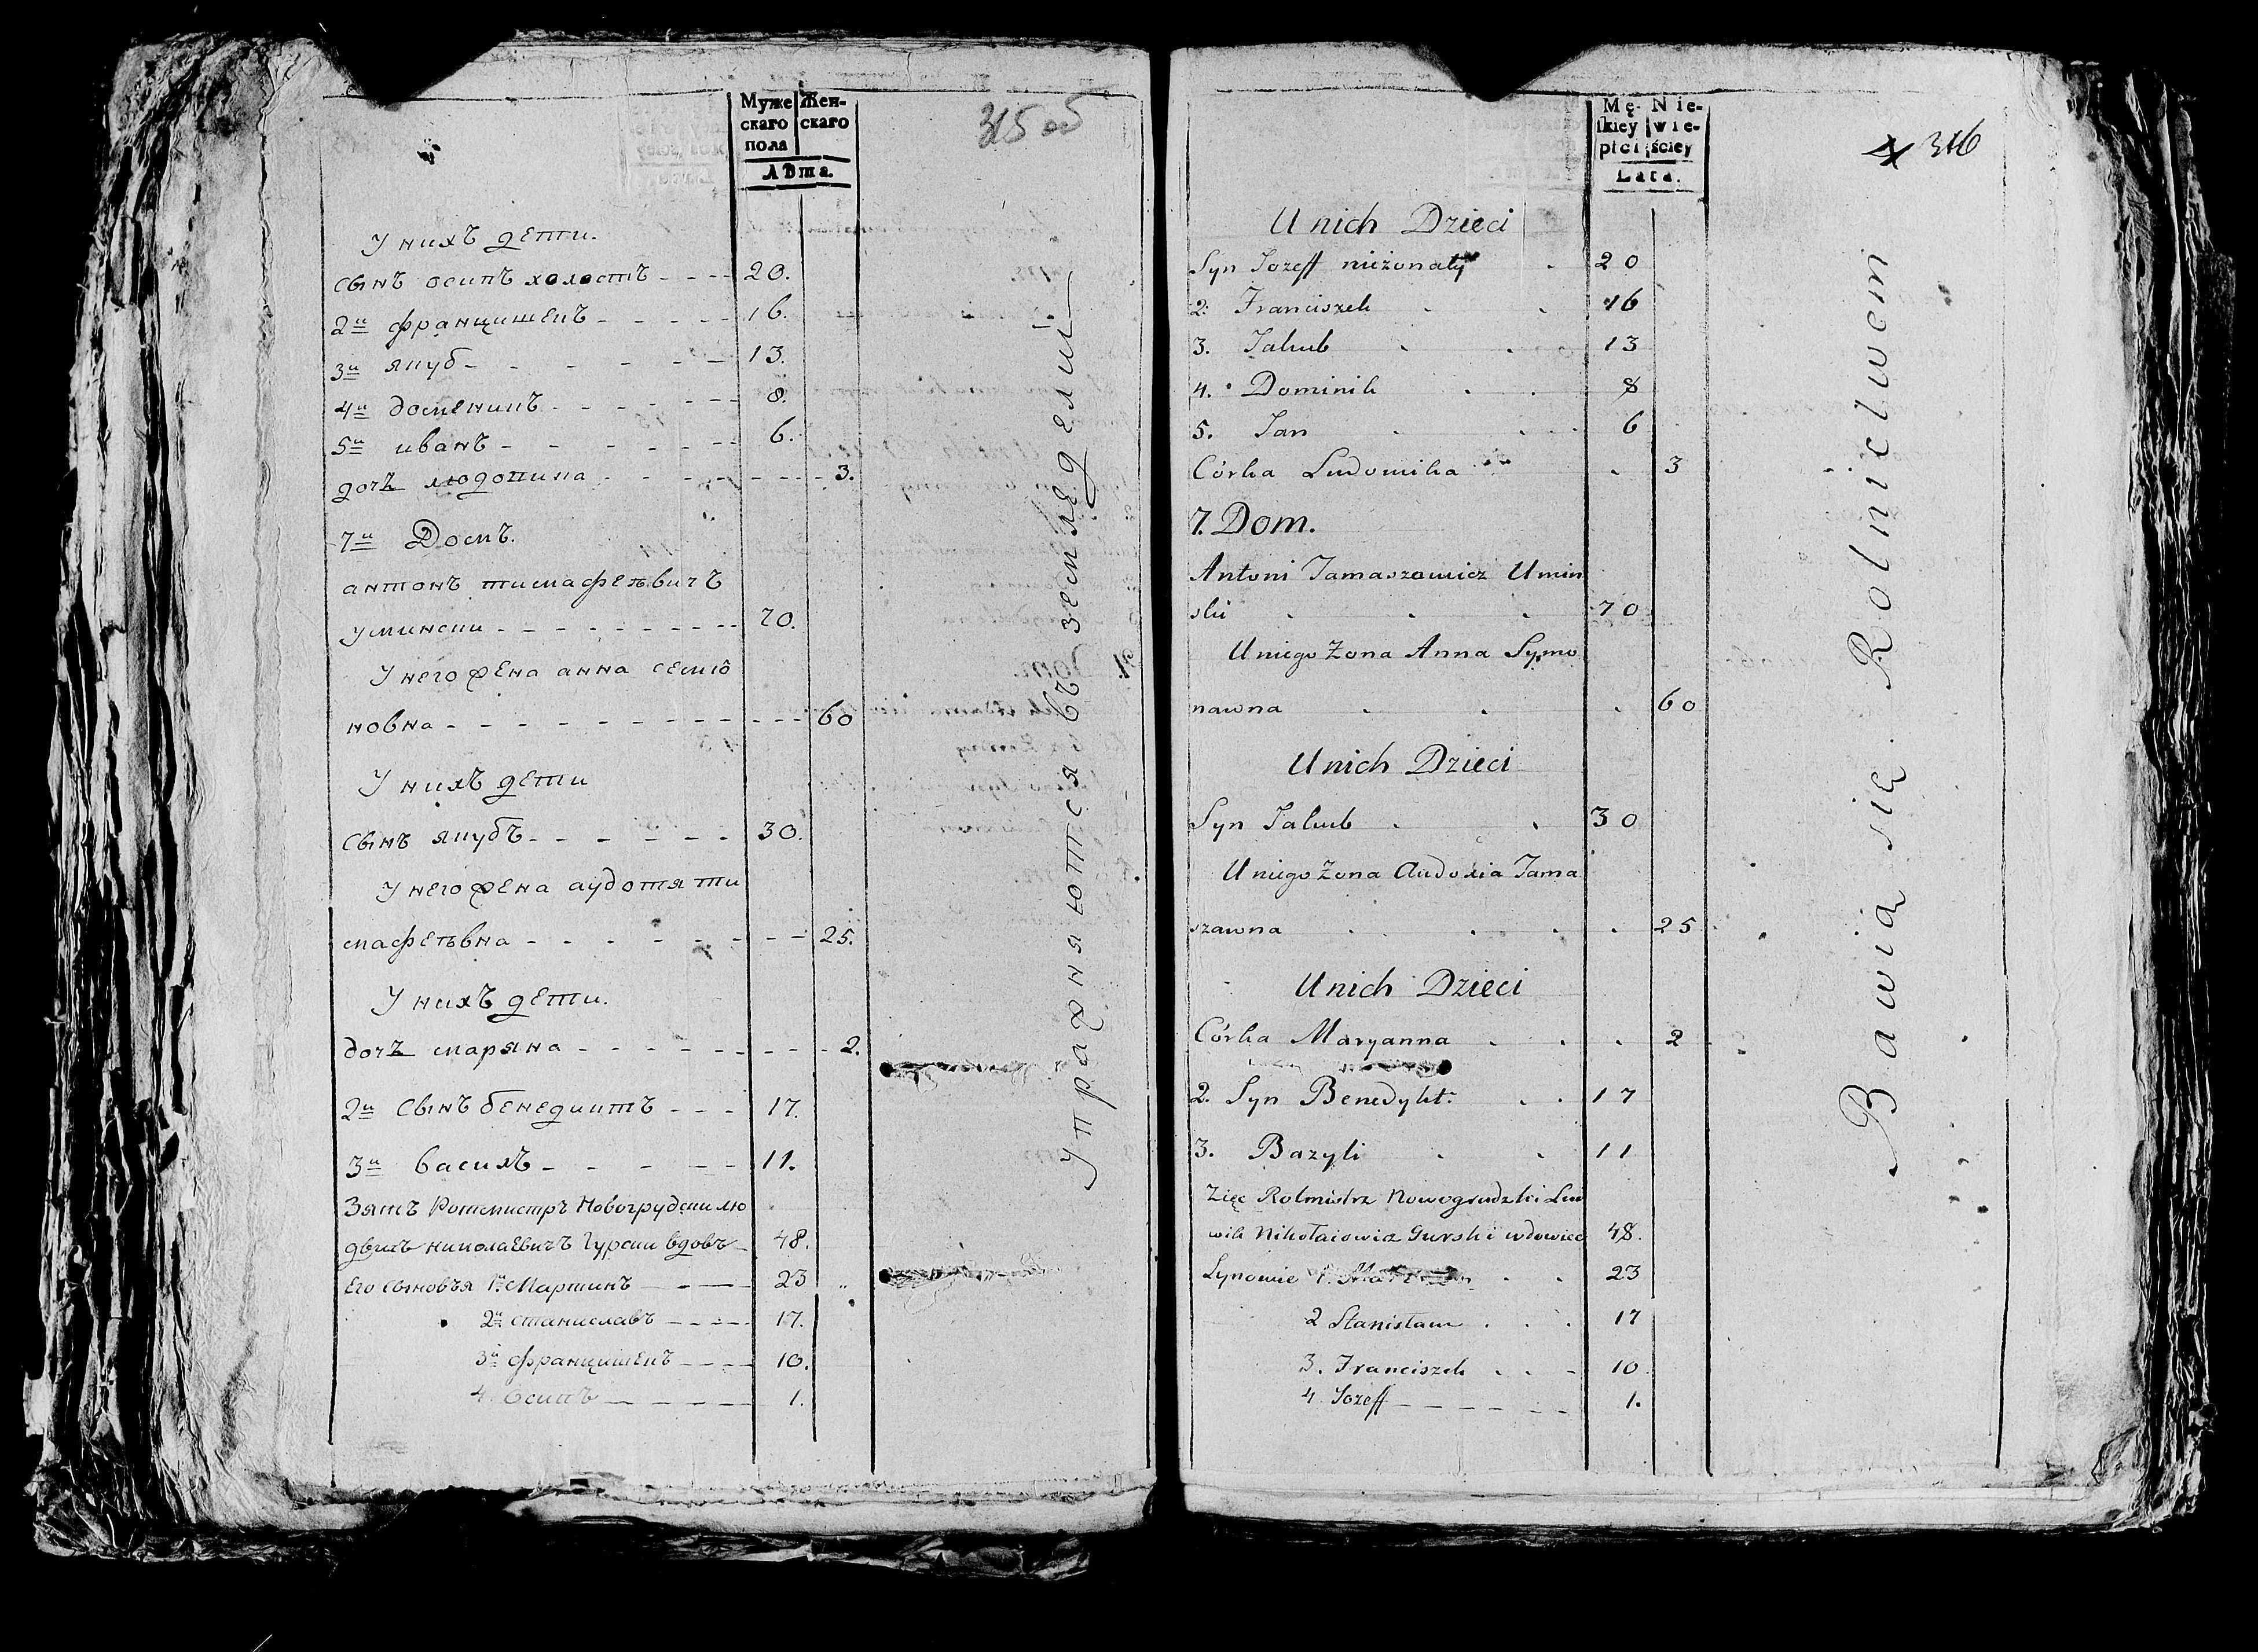 Муже Жен-
скаго скаго
пола
Лѣта.
315 об
У нихъ дети.
сынъ осипъ холостъ 20.
2й францишекъ 16.
3й якуб 13.
4й доменикъ 8.
5й иванъ 6.
дочъ людовика 3.
7й Домъ.
антонъ тимафеьвичъ
умински 70.
У него жена анна семио
новна 60
У нихъ дети
сынъ якубъ 30.
У него жена аудотя ти
мафеьвна 25.
У нихъ дети.
дочъ маряна 2.
2й сынъ бенедиктъ 17.
3й васил 11.
Зять Ротмистръ Новогрудски лю
двикъ николаевичъ Гурски вдовъ 48.
Его сыновья 1й Мартинъ 23
2й станиславъ 17.
3й францишекъ 10.
4. Осипъ 1.
Упражняются въ земледелий
Mę- Nie-
ſkiey wie-
płci ściey
Lata.
316
U nich Dzieci
Syn Jozeff nieżonaty 20
2. Franciszek 16
3. Jakub 13
4. Dominik 8
5. Jan 6
Córka Ludowika 3
7. Dom.
Antoni Tamaszowicz Umin
ski 70
U niego Żona Anna Symo
nawna 60
U nich Dzieci
Syn Jakub 30
U niego Żona Audosia Tama
szawna 25
U nich Dzieci
Córka Maryanna 2
2. Syn Benedykt 17
3. Bazyli 11
Zięc Rotmistrz Nowogrudzki Lud
wik Nikołaiowicz Gurski wdowiec 48.
Synowie 1. 23
2 Stanisław 17
3. Franciszek 10
4 Jozeff 1.
Bawią się Rolnictwem